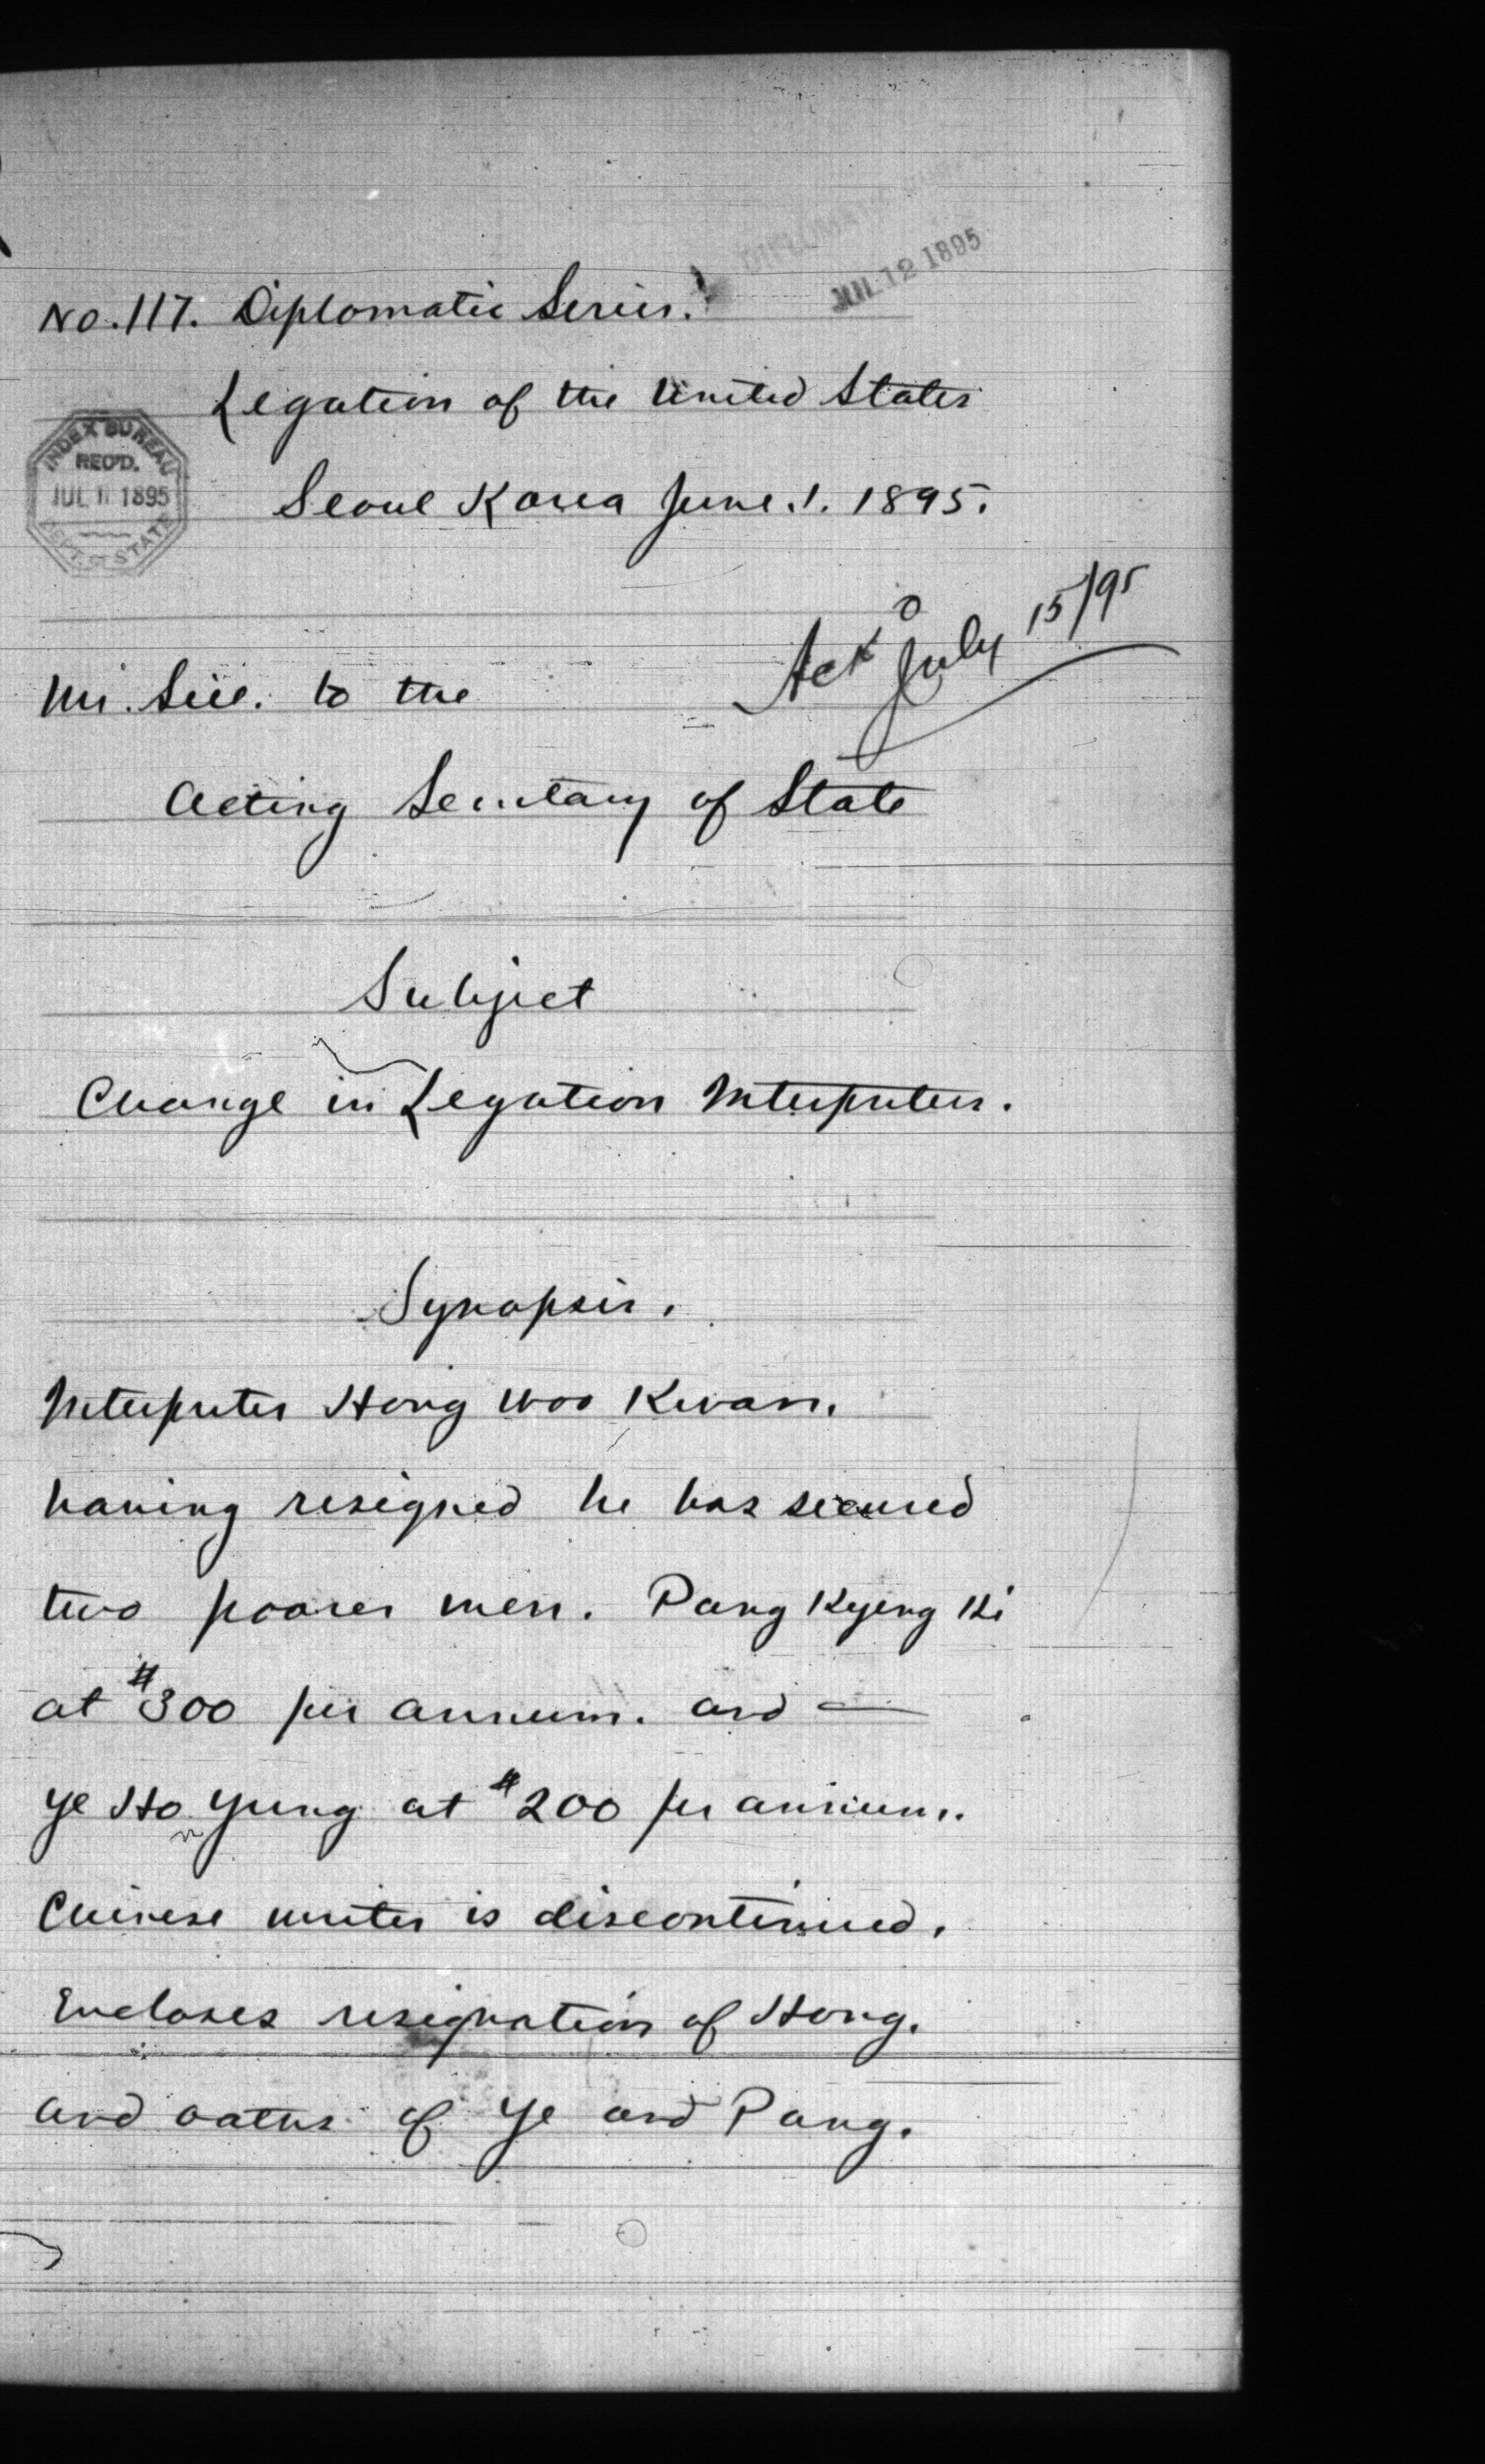 DIPLOMATIC
JUL 12 1895
No. 117. Diplomatic Series.
Legation of the United States
INDEX BUREAU
REC'D.
JUL 11 1895
DEPT. OF STATE
Seoul Korea June. 1. 1895.
Ackd July 15/95
Mr. Sill. to the
Acting Secretary of State
Subject
Change in Legation Interpreters.
Synopsis.
Interpreter Hong Woo Kwan.
having resigned he has secured
two poorer men. Pang Kyeng Ki
at $300 per annum. and —
Ye Ho Yung at $200 per annum.
Chinese writer is discontinued.
Encloses resignation of Hong.
and oaths of Ye and Pang.